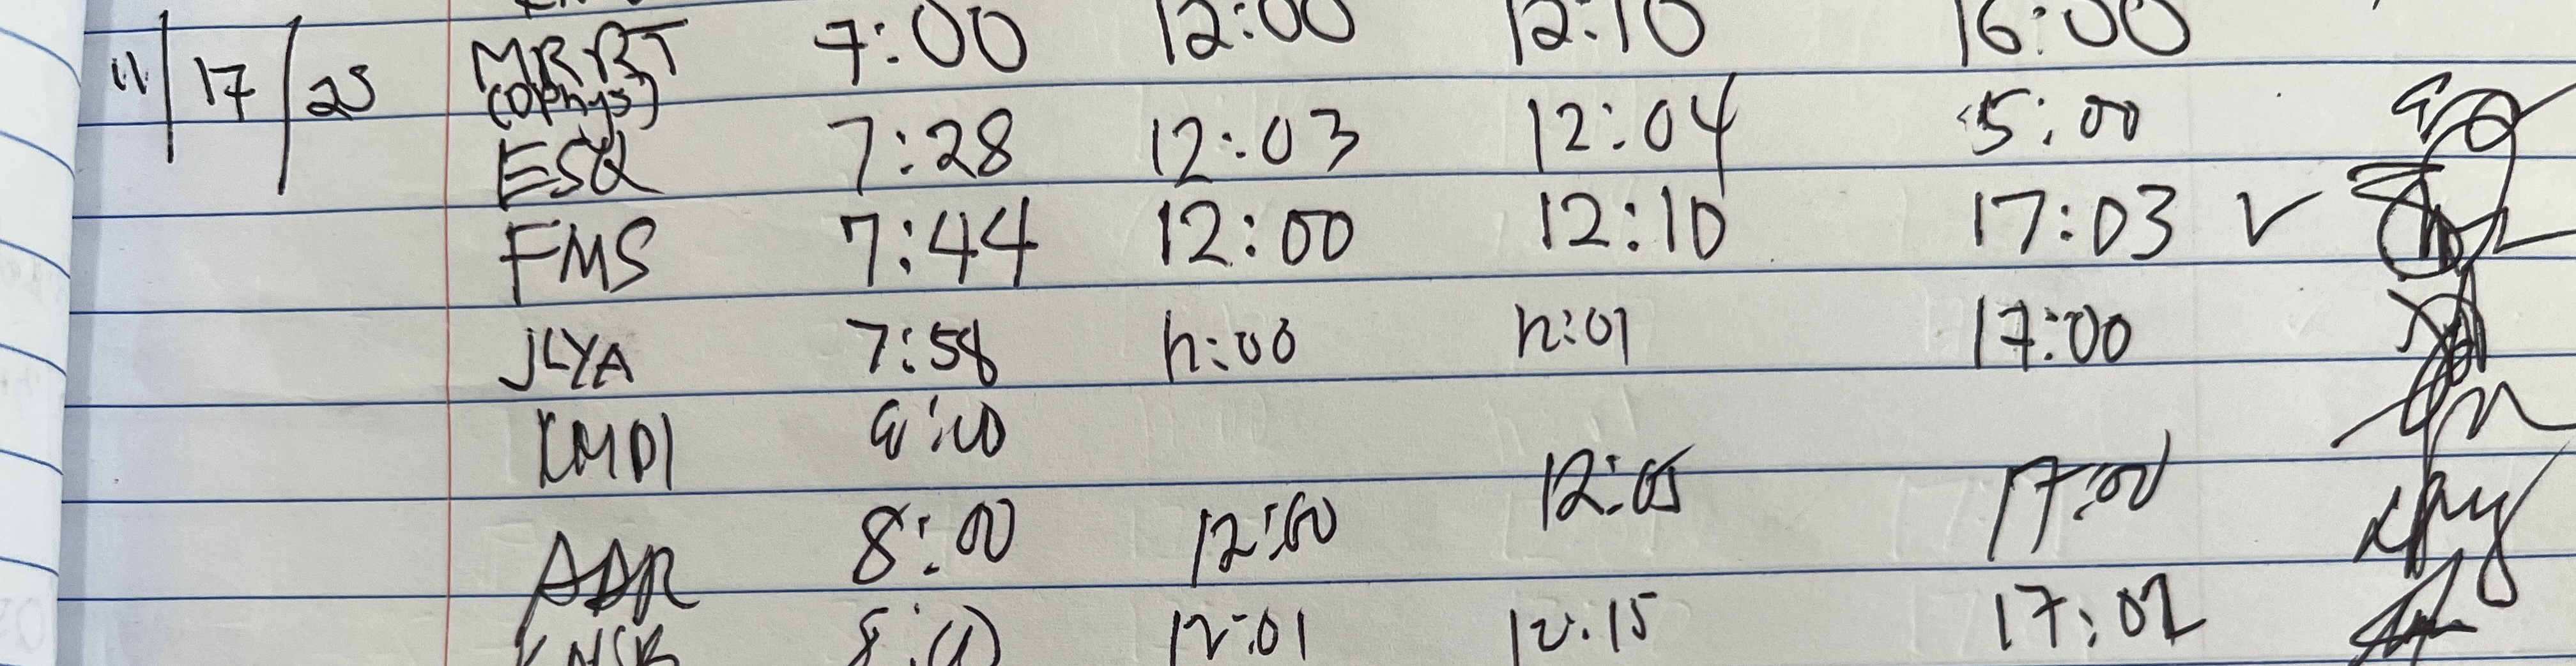 11/17/25 MRRT 7:00 12:00 12:10 16:00
(Ophys)
ESQ 7:28 12:03 12:04 5:00
FMS 7:44 12:00 12:10 17:03 ✓
JLYA 7:58 12:00 12:01 17:00
KMDI
ADR 8:00 12:00 12:05 17:00
12:01 12:15 17:02